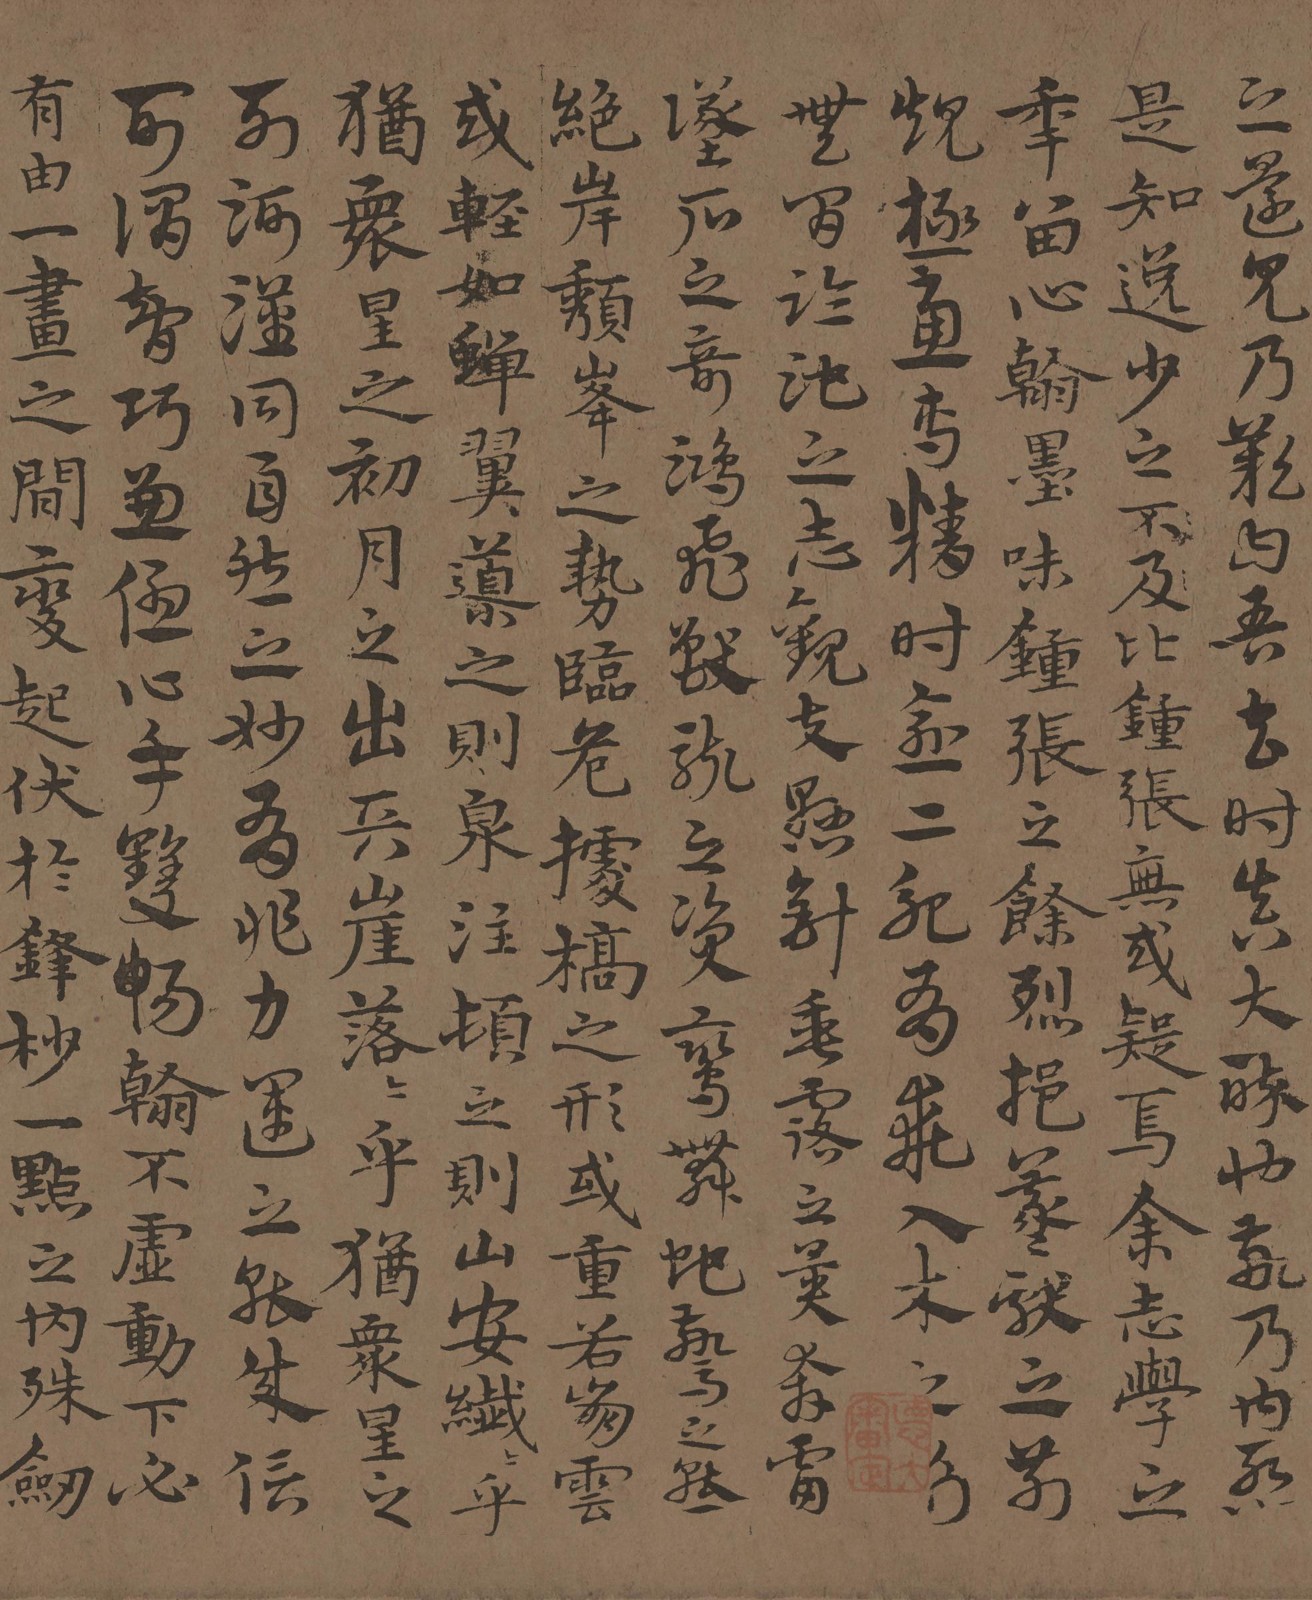 之還見乃歎曰吾去时真大醉也敬乃内慙
是知逸少之不及比鍾張無或疑焉余志學之
年留心翰墨味鍾張之餘烈挹羲獻之前
規極慮專精时逾二紀有乖入木之術
無間臨池之志觀夫懸針垂露之異奔雷
墜石之奇鴻飛獸駭之資鸞舞蛇驚之態
絶岸頹峯之勢臨危據槁之形或重若崩雲
或輕如蟬翼導之則泉注頓之則山安纖〻乎
猶衆星之初月之出天崖落〻乎猶衆星之
列河漢同自然之妙有非力運之能成信
可謂智巧兼優心手雙暢翰不虛動下必
有由一畫之間變起伏於鋒杪一點之内殊衂